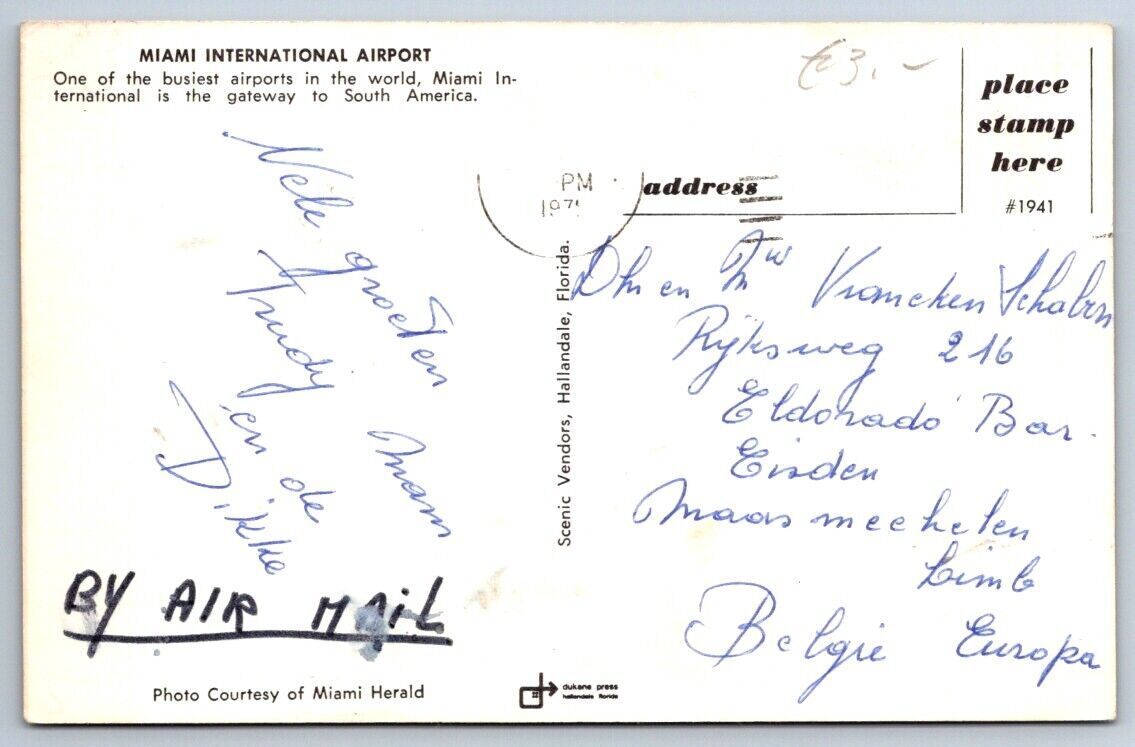 MIAMI INTERNATIONAL AIRPORT
One of the busiest airports in the world, Miami In-
ternational is the gateway to South America.
€3.-
place
stamp
here
#1941
PM
197
address
Vele groeten
Trudy mam
en de
Dikke
BY AIR MAIL
Photo Courtesy of Miami Herald
Scenic Vendors, Hallandale, Florida.
dukane press
hallandale florida
Dhr en Mw Vrancken Schaben
Rijksweg 216
Eldorado Bar.
Eisden
Maasmechelen
Limb
Belgie Europa